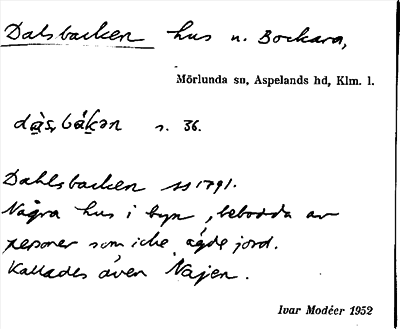 Dalsbacken hus u. Bockara,
Mörlunda sn, Aspelands hd, Klm. l.
dàs,bák̬ən s. 36.
Dahlsbacken ss 1791.
Några hus i byn, bebodda av
personer som icke ägde jord.
Kallades även Najen.
Ivar Modéer 1952